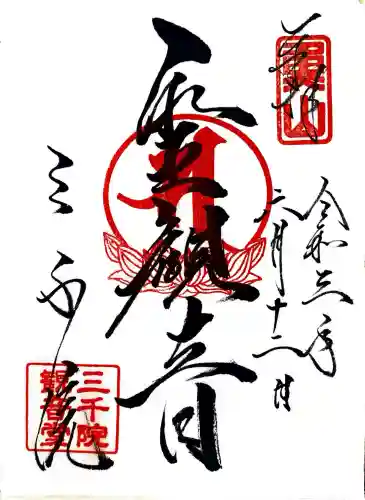 奉拝
魚山
令和三年
六月十二日
聖観音
三千院
三千院
觀音堂